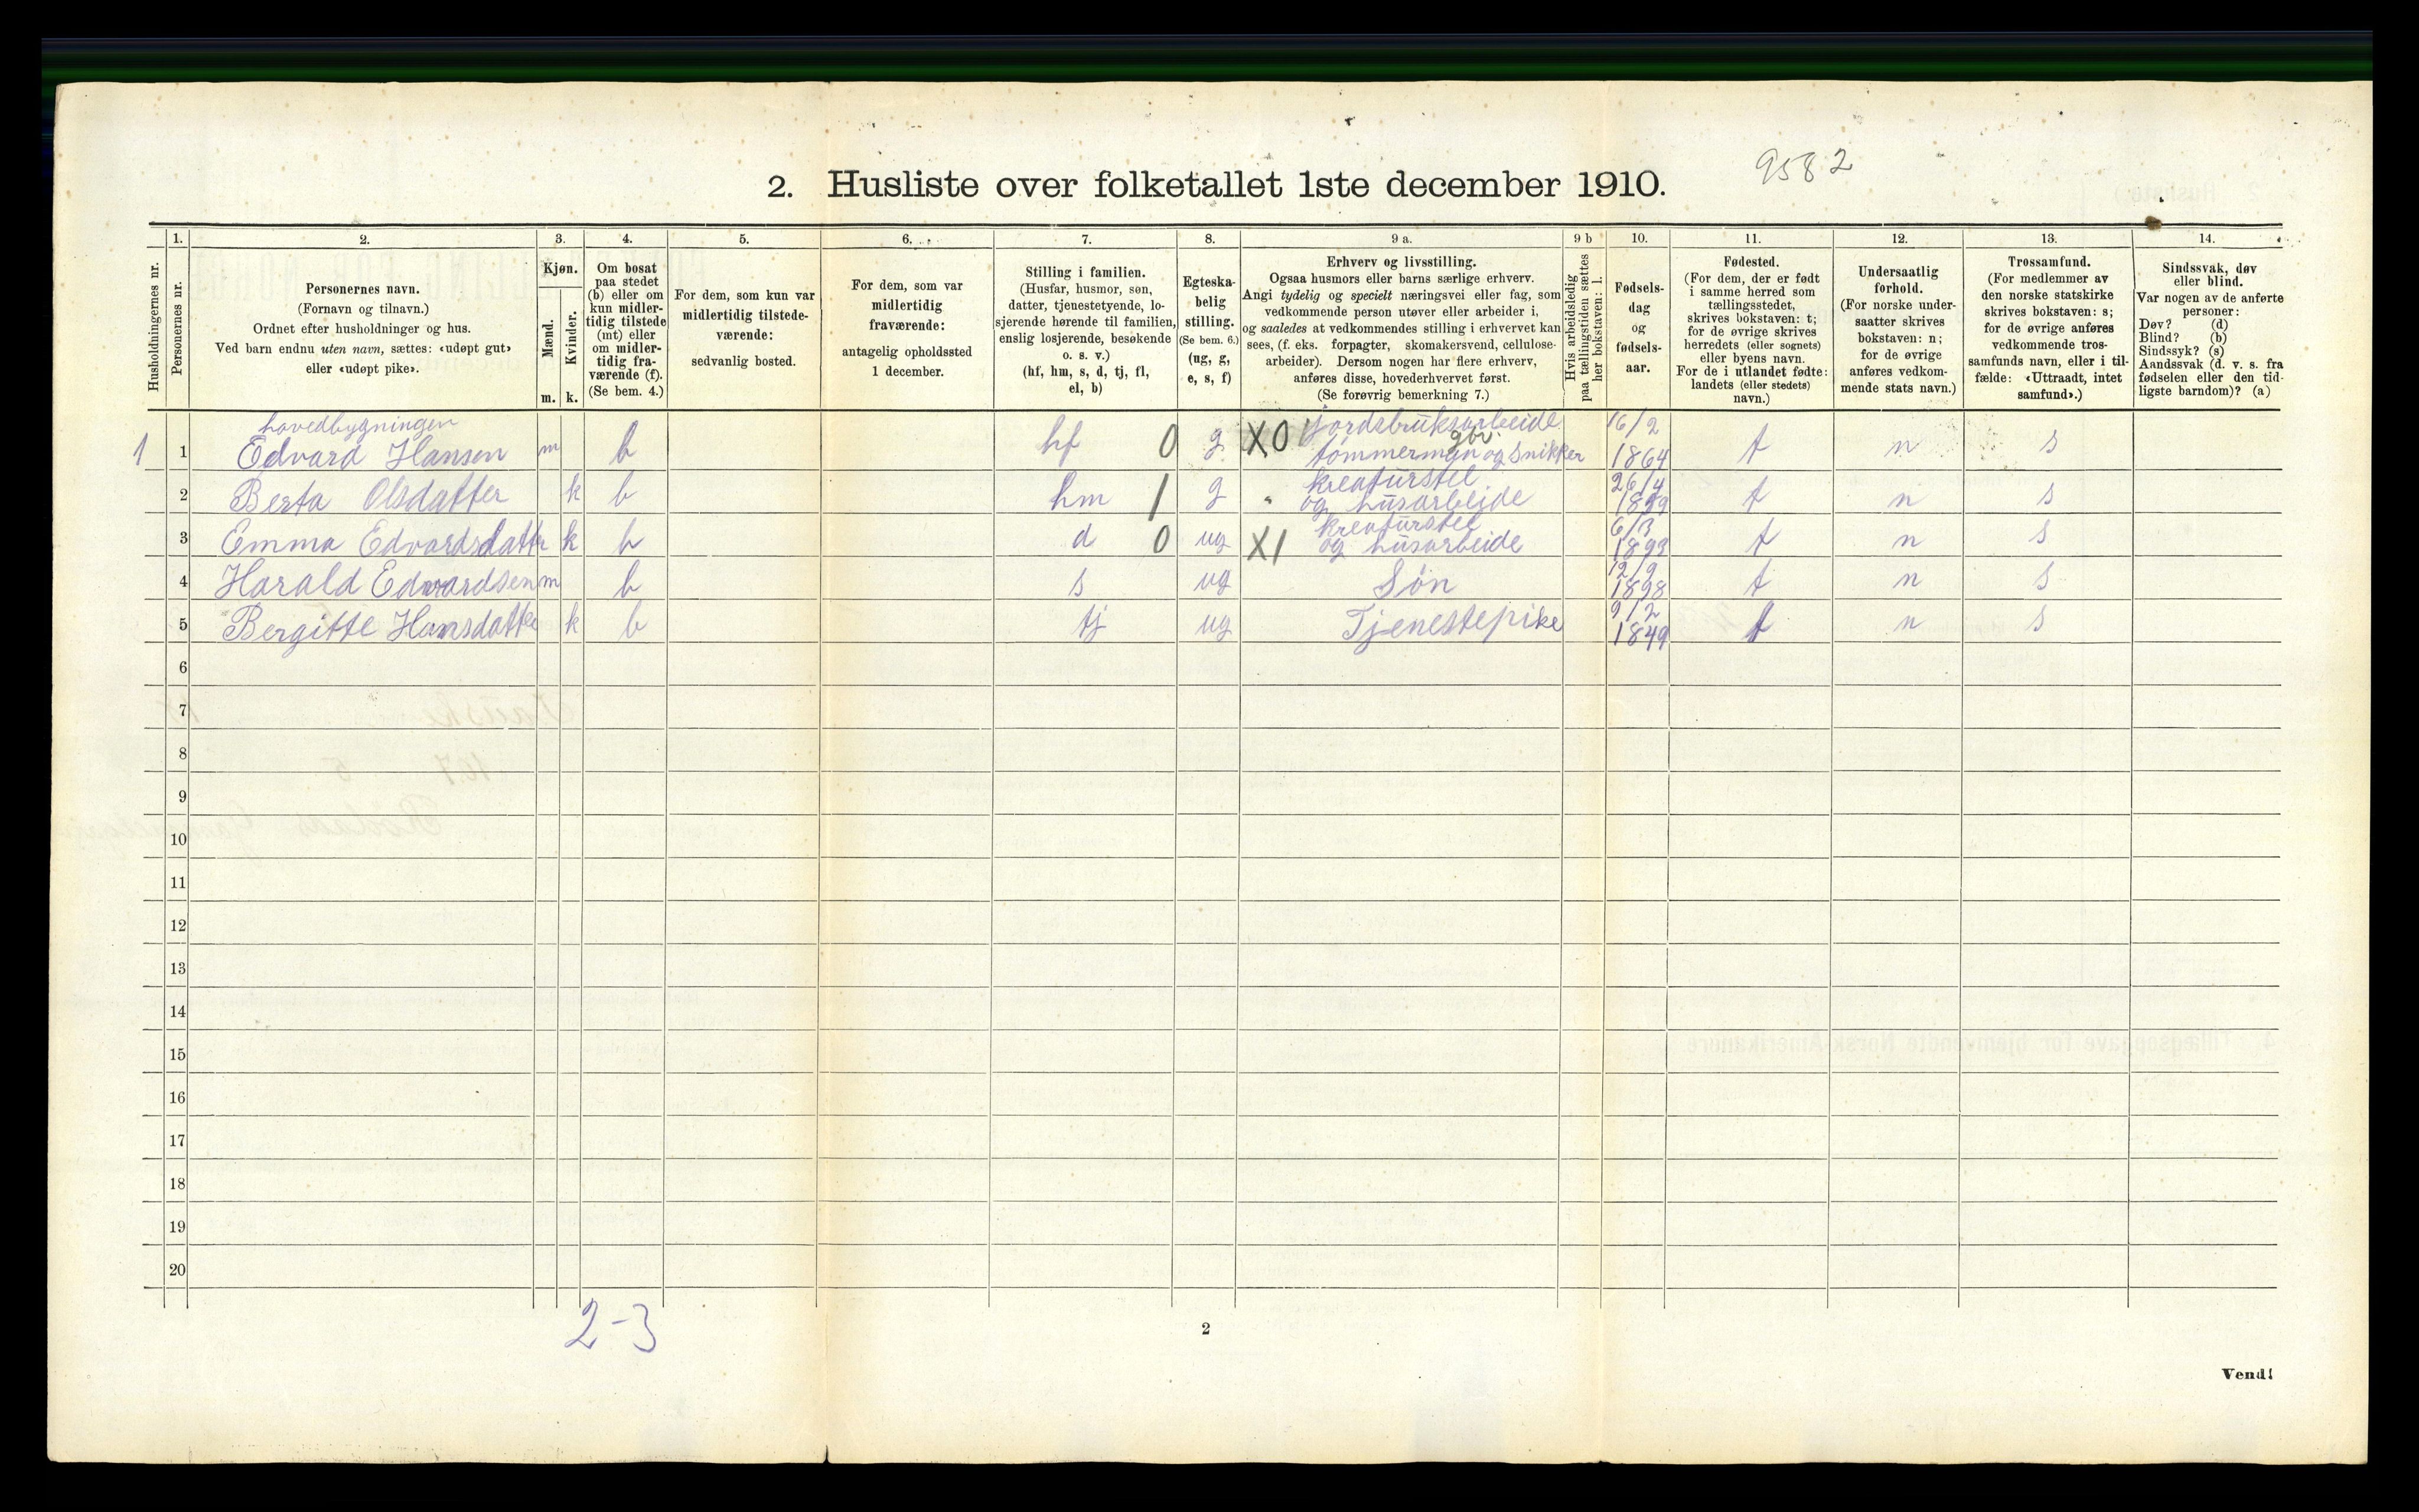 9582
2. Husliste over folketallet 1ste december 1910.
Husholdningernes nr.
1.
Personernes nr.
2.
Personernes navn.
(Fornavn og tilnavn.)
Ordnet efter husholdninger og hus.
Ved barn endnu uten navn, sættes: «udøpt gut»
eller «udøpt pike».
3.
Kjøn.
Mænd.
Kvinder.
m. k.
4.
Om bosat
paa stedet
(b) eller om
kun midler-
tidig tilstede
(mt) eller
om midler-
tidig fra-
værende (f).
(Se bem. 4.)
5.
For dem, som kun var
midlertidig tilstede-
værende:
sedvanlig bosted.
6.
For dem, som var
midlertidig
fraværende:
antagelig opholdssted
1 december.
7.
Stilling i familien.
(Husfar, husmor, søn,
datter, tjenestetyende, lo-
sjerende hørende til familien,
enslig losjerende, besøkende
o. s. v.)
(hf, hm, s, d, tj, fl,
el, b)
8.
Egteska-
belig
stilling.
(Se bem. 6.)
(ug, g,
e, s, f)
9 a.
Erhverv og livsstilling.
Ogsaa husmors eller barns særlige erhverv.
Angi tydelig og specielt næringsvei eller fag, som
vedkommende person utøver eller arbeider i,
og saaledes at vedkommendes stilling i erhvervet kan
sees, (f. eks. forpagter, skomakersvend, cellulose-
arbeider). Dersom nogen har flere erhverv,
anføres disse, hovederhvervet først.
(Se forøvrig bemerkning 7.)
9 b
Hvis arbeidsledig
paa tællingstiden sættes
her bokstaven: l.
10.
Fødsels-
dag
og
fødsels-
aar.
11.
Fødested.
(For dem, der er født
i samme herred som
tællingsstedet,
skrives bokstaven: t;
for de øvrige skrives
herredets (eller sognets)
eller byens navn.
For de i utlandet fødte:
landets (eller stedets)
navn.)
12.
Undersaatlig
forhold.
(For norske under-
saatter skrives
bokstaven: n;
for de øvrige
anføres vedkom-
mende stats navn.)
13.
Trossamfund.
(For medlemmer av
den norske statskirke
skrives bokstaven: s;
for de øvrige anføres
vedkommende tros-
samfunds navn, eller i til-
fælde: «Uttraadt, intet
samfund».)
14.
Sindssvak, døv
eller blind.
Var nogen av de anførte
personer:
Døv? (d)
Blind? (b)
Sindssyk? (s)
Aandssvak (d. v. s. fra
fødselen eller den tid-
ligste barndom)? (a)
hovedbygningen jordsbruksarbeide 16/2
gbr.
1 1 Edvard Hansen m b hf 0 g X0 tømmerman og snikker 1864 t n s
kreaturstel 26/4
2 Berta Olsdatter k b hm 1 g " og husarbeide t n s
kreaturstel 6/3
3 Emma Edvardsdatter k b d 0 ug X1 og husarbeide 1893 t n s
12/9
4 Harald Edvardsen m b s ug Søn 1898 t n s
9/2
5 Bergitte Hansdatter k b tj ug Tjenestepike 1849 t n s
6
7
8
9
10
11
12
13
14
15
16
17
18
19
20
2-3
2
Vend!